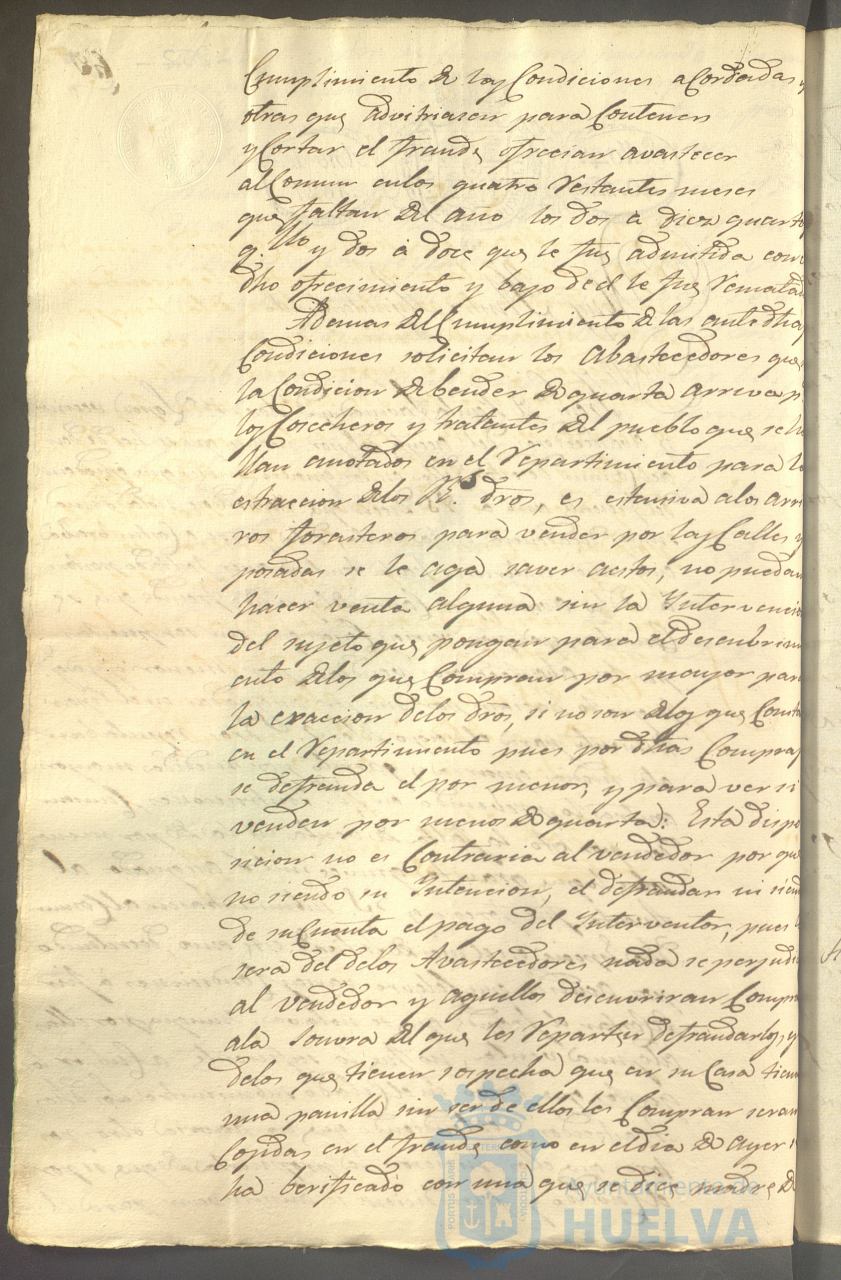 Cumplimiento de las Condiciones acordadas y
otras que advitriasen para Contener
y Cortar el fraude ofrecian avastecer
al Comun en los quatro restantes meses
que faltan del año los dos a diez quartos
q.llo y dos a doce que le fue admitida con
dho ofrecimiento y bajo de el le fue rematad
Ademas del Cumplimiento de las antedhas
Condiciones solicitan los Abastecedores que
la Condicion de bender de quarta arriva p
los Cosecheros y tratantes del pueblo que se ha
llan anotados en el repartimiento para la
estraccion de los R.s dros, es estensiva a los arri
ros forasteros para vender por las Calles y
posadas se le aga saver a estos, no puedan
hacer venta alguna sin la Intervencio
del sujeto que pongan para el descubrimi
ento de los que Compran por mayor para
la exaccion de los dros, si no son de los que Consta
en el repartimiento pues por dhas Compras
se defrauda el por menor, y para ver si
venden por menos de quarta: Esta dispo
sicion no es Contraria al vendedor por que
no siendo su Intencion, el defraudar ni siend
de su Cuenta el pago del Interventor, pues
sera del de los Avastecedores nada se perjudi
al vendedor y aquellos descuvriran Compra
a la sonvra del que les reparten defraudarlos, y
de los que tienen sospecha que en su Casa tiene
una panilla sin ser de ellos les Compran seran
Cojidas en el fraude como en el dia de ayer
ha berificado con una que se dice madre de
PORTUS MARIS
ET TERRAE
CUSTODIA
Ayuntamiento de
HUELVA